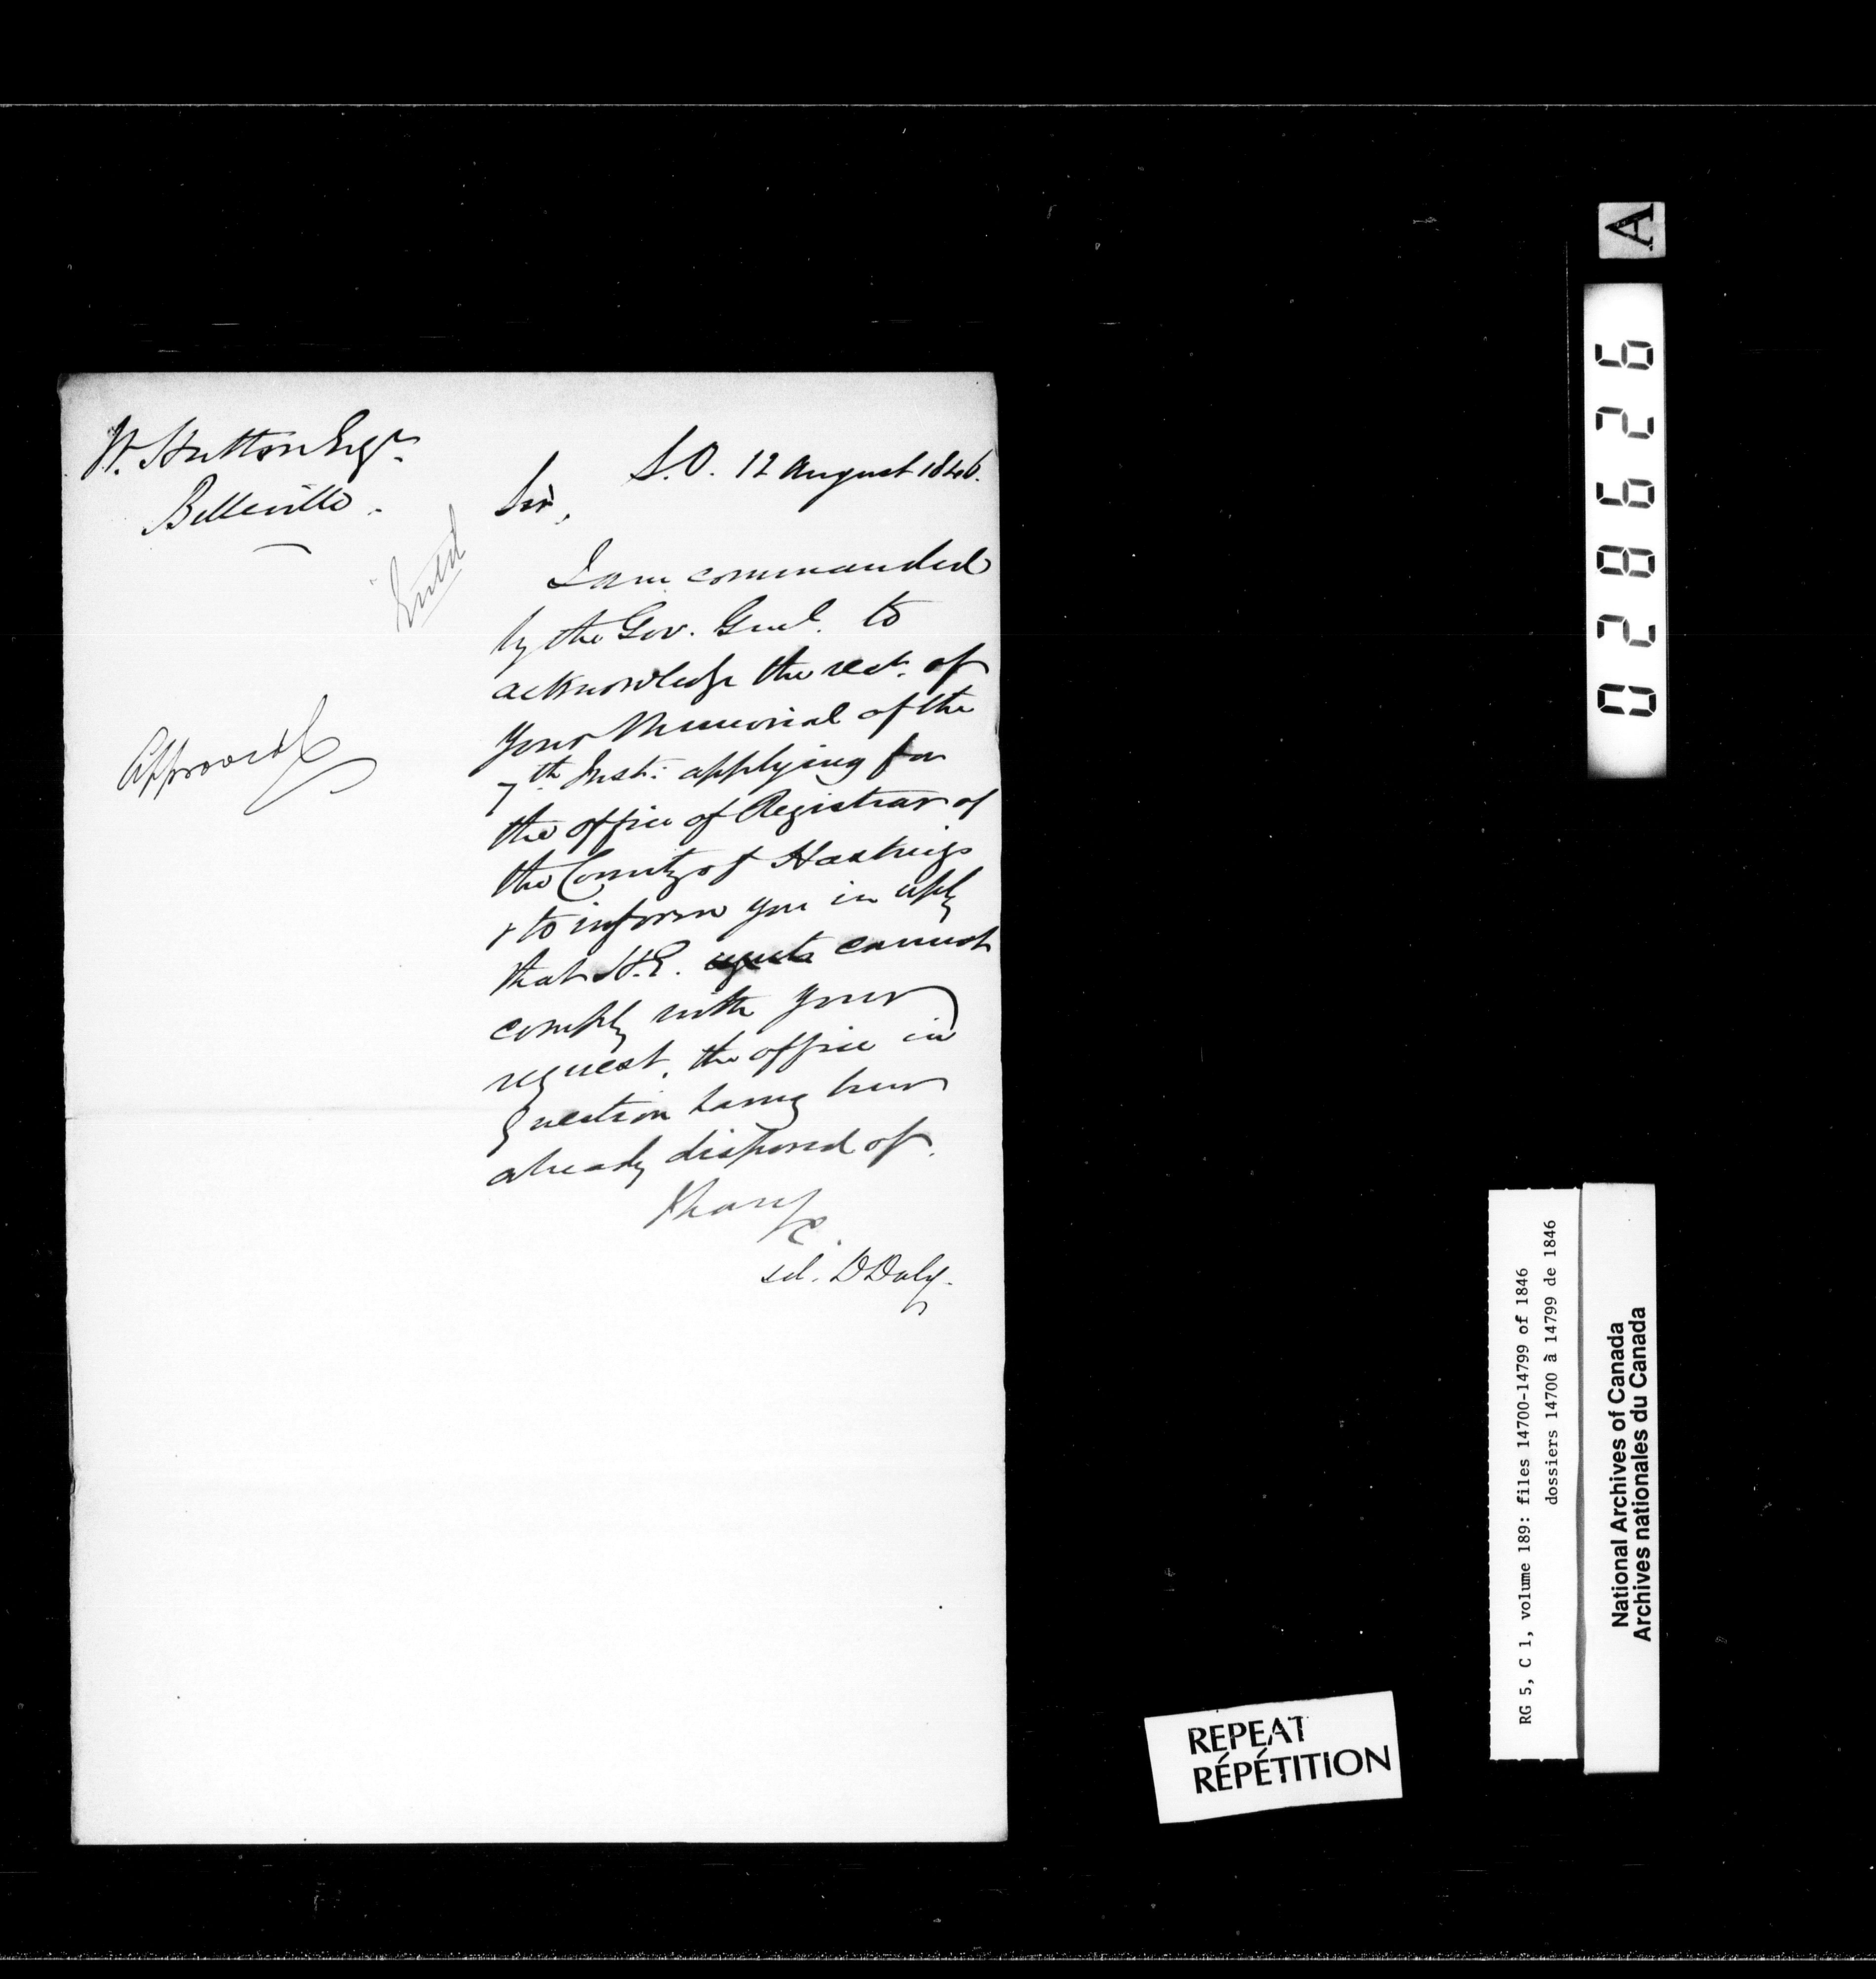 W. Hutton Esqr.
Belleville.
S.O. 12 August 1846.
Sir,
Entd
I am commanded
by the Gov. Genl. to
acknowledge the rect. of
your Memorial of the
7th Inst: applying for
the office of Registrar of
the County of Hastings
& to inform you in reply
that H.E. cannot
comply with your
request, the office in
question having been
already disposed of.
Approved
I have &c.
sd. D Daly.
A
028626
RG 5, C 1, volume 189: files 14700-14799 of 1846
dossiers 14700 à 14799 de 1846
National Archives of Canada
Archives nationales du Canada
REPEAT
RÉPÉTITION